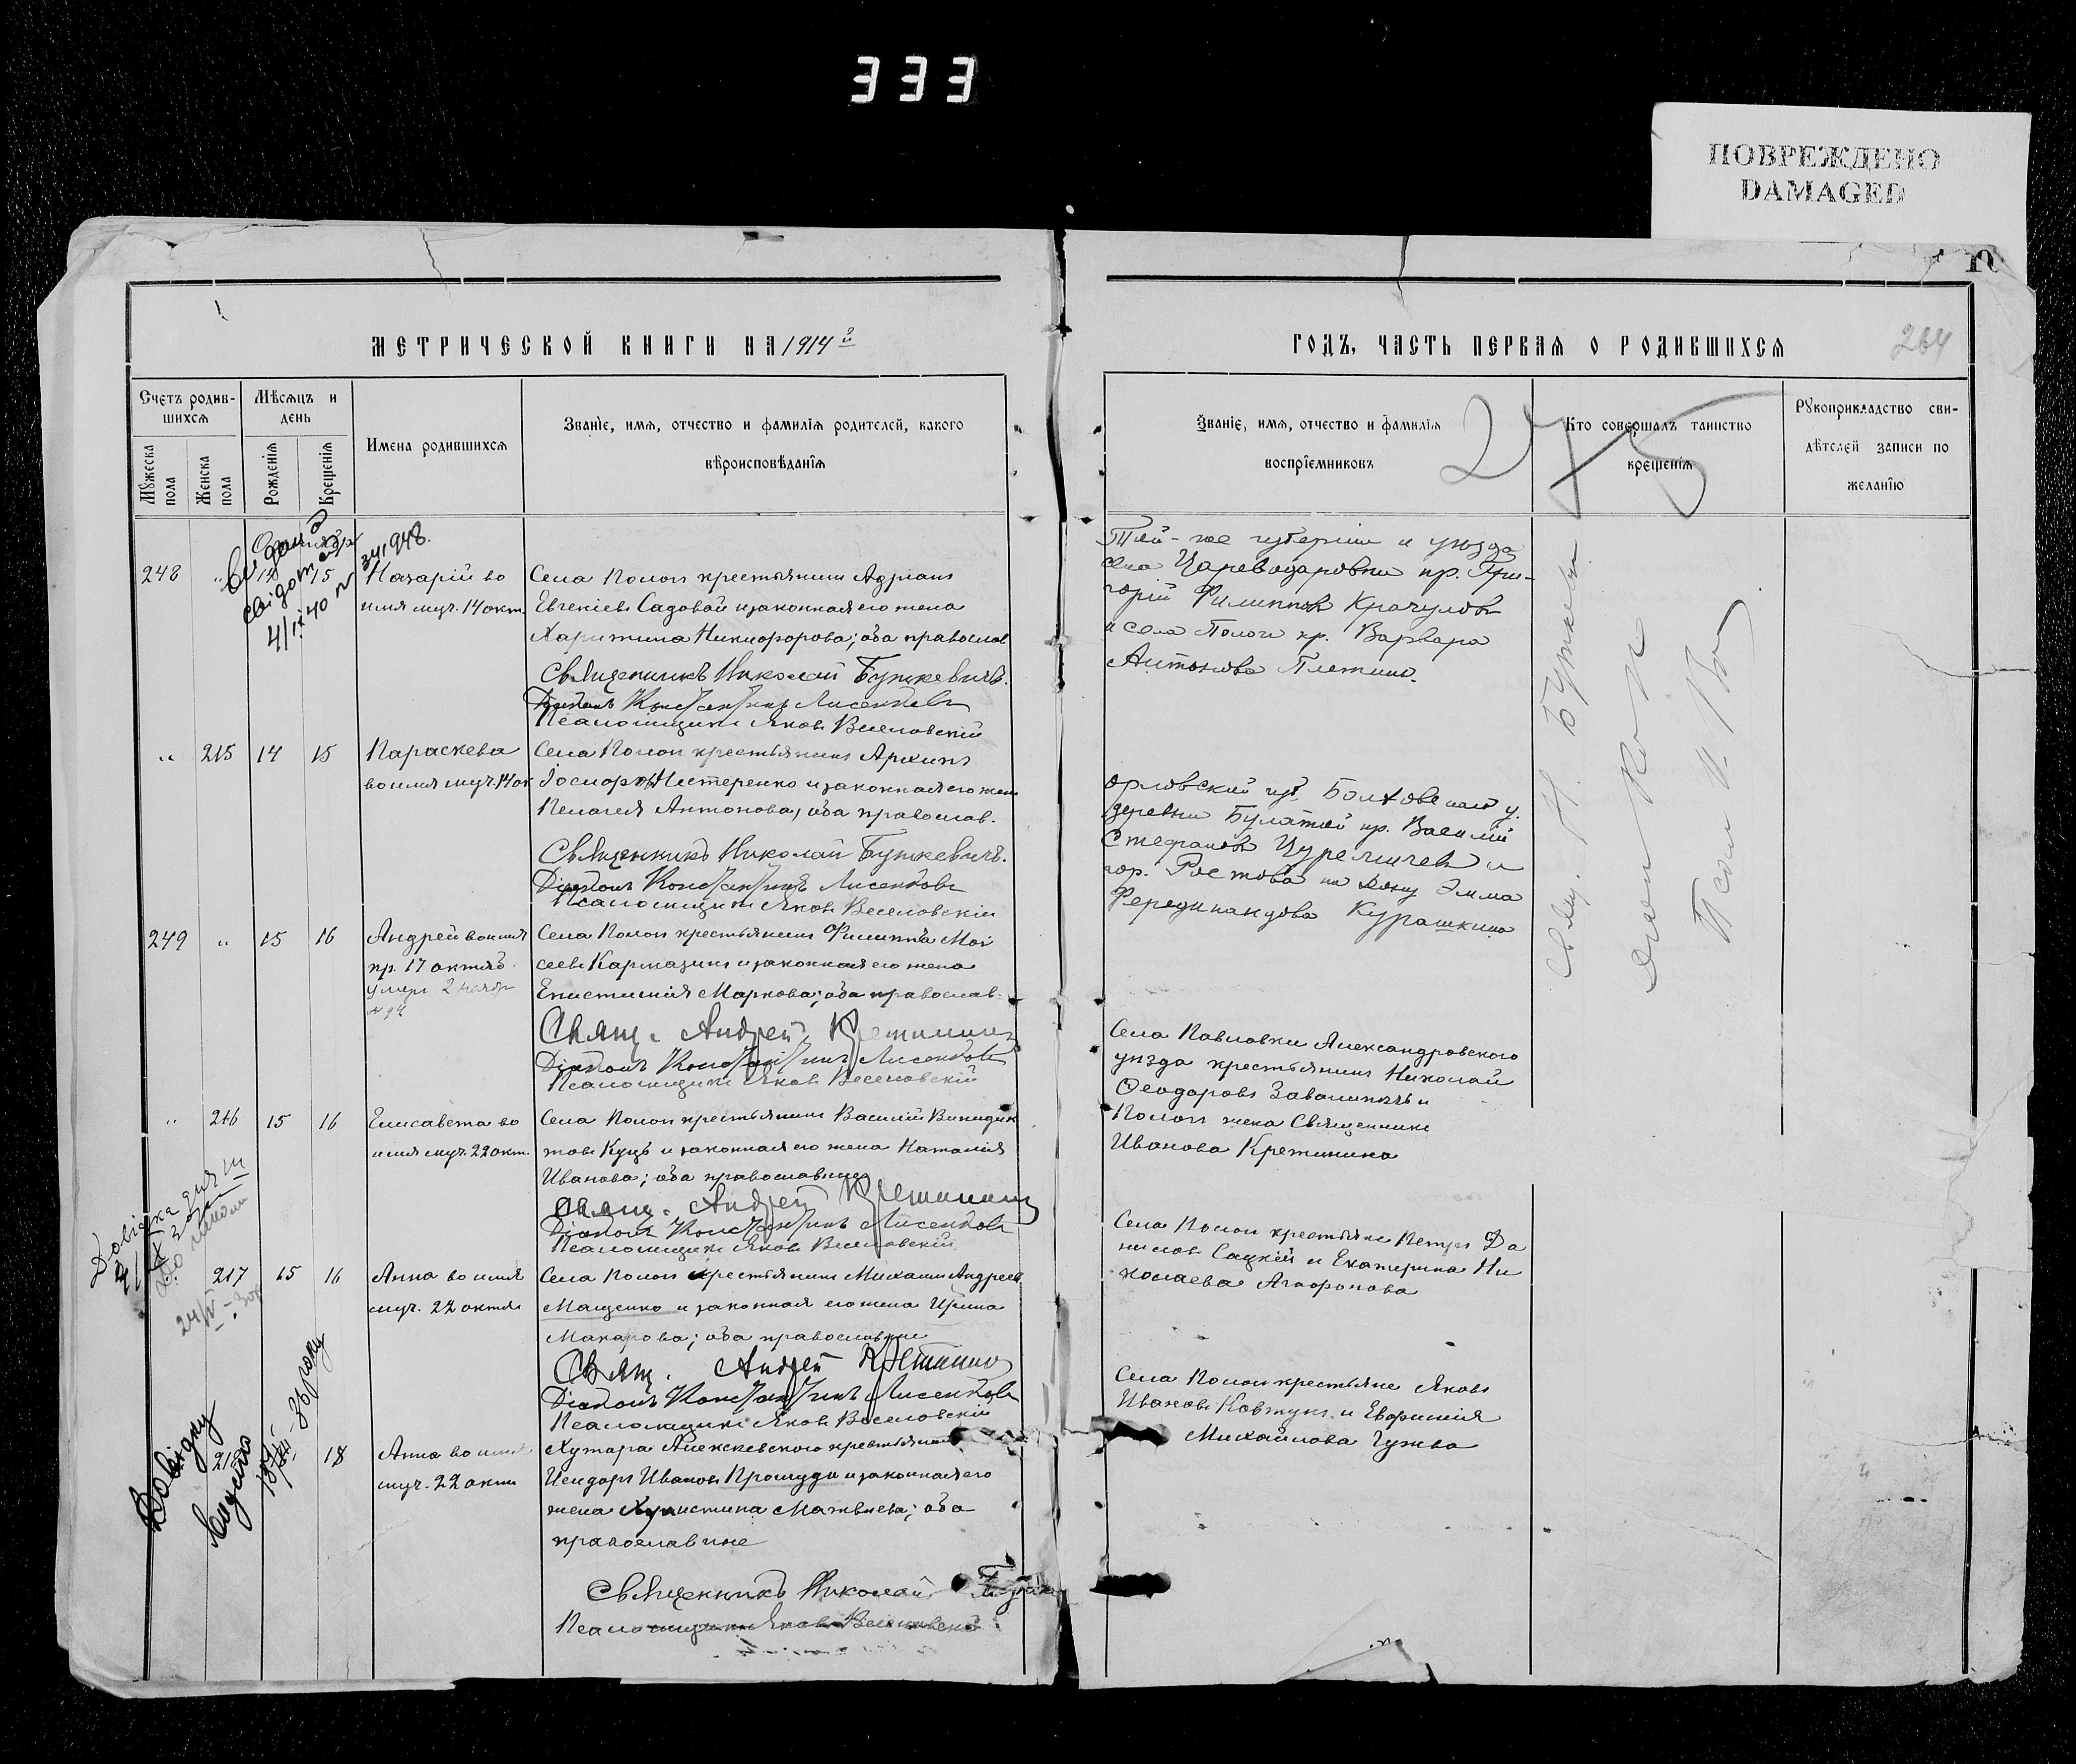 333
ПОВРЕЖДЕНО
DAMAGED
10
МЕТРИЧЕСКОЙ КНИГИ НА 1914 й
ГОДЪ, ЧАСТЬ ПЕРВАЯ О РОДИВШИХСЯ
264
Счетъ родив-
шихся
Мужеска пола
Женска пола
Мѣсяцъ и
день
Рожденія
Крещенія
Имена родившихся
Званіе, имя, отчество и фамилія родителей, какого
вѣроисповѣданія
Званіе, имя, отчество и фамилія
воспріемниковъ
Кто совершалъ таинство
крещенія
Рукоприкладство сви-
дѣтелей записи по
желанію
25
Октября
248 " 14 15 Назарій во
имя муч. 14 окт.
Села Пологи крестьянинъ Адріанъ
Евгеніевъ Садовой и законная его жена
Харитина Никифорова; оба православ
Священникъ Николай Буткевичъ.
Діаконъ Константинъ Лисенковъ
Псаломщикъ Яковъ Веселовскій
Той-же губерніи и уѣзда
села Цареводаровки кр. Гри-
горій Филипповъ
и села Пологи кр. Варвара
Антонова
" 215 14 15 Параскева
во имя муч. 14 ок
Села Пологи крестьянинъ Архипъ
Нестеренко и законная его жена
Пелагея Антонова, оба православ.
Священникъ Николай Буткевичъ.
Діаконъ Константинъ Лисенковъ
Псаломщикъ Яковъ Веселовскій
Орловской губ. Болховского у.
деревни кр. Василій
Стефановъ и
гор. Ростова на Дону Эмма
Фердинандова Курашкина
249 " 15 16 Андрей во имя
пр. 17 октяб.
умеръ 2 ноябр
Села Пологи крестьянинъ Филиппъ Мои
сеевъ Кармазинъ и законная его жена
Епистимія Маркова; оба православ.
Свящ. Андрей Кретининъ
Діаконъ Константинъ Лисенковъ
Псаломщикъ Яковъ Веселовскій
Села Павловки Александровского
уѣзда крестьянинъ Николай
Феодоровъ и
Пологи жена Священника
Иванова Кретинина
" 216 15 16 Елисавета во
имя муч. 22 окт.
Села Пологи крестьянинъ Василій Викидик
товъ Куцъ и законная его жена Наталія
Иванова; оба православные
Свящ. Андрей Кретининъ
Діаконъ Константинъ Лисенковъ
Псаломщикъ Яковъ Веселовскій
Села Пологи крестьяне Петръ Да
ниловъ Сацкій и Екатерина Ни
колаева Агафонова
217 15 16 Анна во имя
муч. 22 октя
Села Пологи крестьянинъ Михаилъ Андреев
Мащенко и законная его жена Ирина
Макарова; оба православные
Свящ. Андрей Кретининъ
Діаконъ Константинъ Лисенковъ
Псаломщикъ Яковъ Веселовскій
Села Пологи крестьяне Яковъ
Ивановъ Ковтунъ и Евфимія
Михайлова Гужва
18 Анна во имя
муч. 22 окт
Хутора Алексеевского крестьянинъ
Исидоръ Ивановъ и законная его
жена Христина Матвеева; оба
православные
Священникъ Николай
Псаломщикъ Яковъ Веселовскій
Довідку
видано